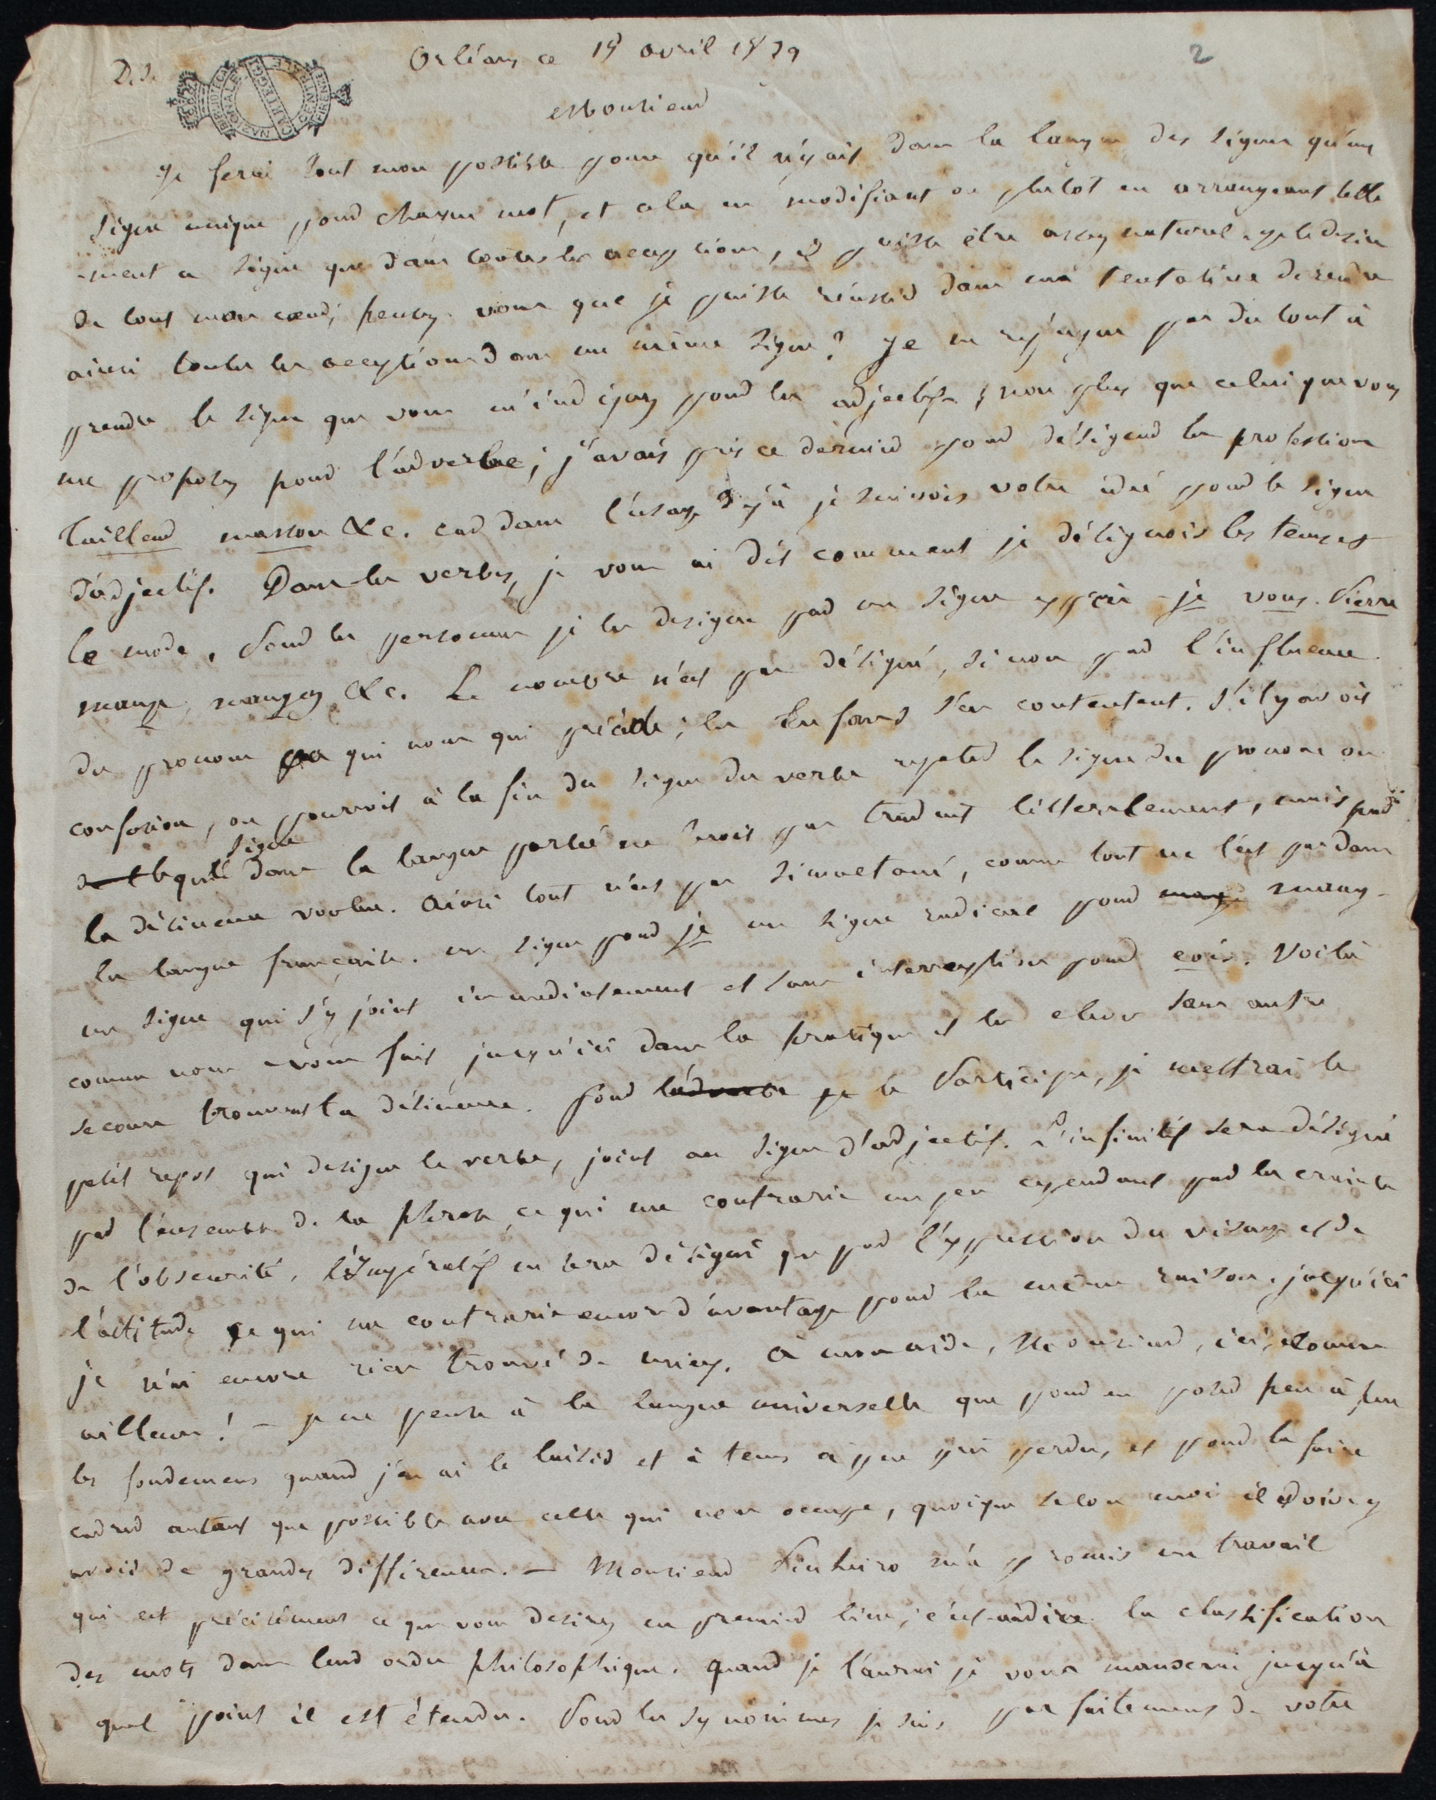 D. S.
BIBLIOTECA NAZIONALE CENTRALE
2
Orléans ce 18 avril 1839
Monsieur
Je ferai tout mon possible pour qu'il n'y ait dans la langue des signes qu'un
signe unique pour chaque mot, et cela en modifiant ou plutot en arrangeant telle
-ment ce signe que dans toutes les acceptions, il puisse être assez naturel. je le desire
de tout mon coeur; pensez-vous que je puisse réussir dans ma tentative de rendre
ainsi toutes les acceptions dans un même signe? Je ne répugne pas du tout à
prendre le signe que vous m'indiquez pour les adjectifs, non plus que celui que vous
me proposez pour l'adverbe; j'avais pris ce dernier pour désigner les professions
tailleur masson &c. car dans l'usage déjà je suivois votre idée pour le signe
d'adjectif. Dans les verbes, je vous ai dit comment je désignois les temps et
le mode. Pour les personnes je les designe par un signe exprès je vous Pierre
mange, mangez &c. Le nombre n'est pas désigné, sinon par l'influence
du pronom qui nom qui précède; les Enfans s'en contentent. S'il y avoit
confusion, on pourroit à la fin du signe du verbe repeter le signe du pronom ou
signe
dans la langue parlée ne seroit pas traduit litteralement, mais par
la désinence voulue. Ainsi tout n'est pas simultané, comme tout ne l'est pas dans
la langue française. un signe pour je un signe radical pour mang-
un signe qui s'y joint immediatement et sans interruption pour eois. Voilà
comme nous avons fait jusqu'ici dans la pratique et les eleves sans autre
secours trouvent la désinence. Pour l'adverbe le Participe, je mettrai le
petit repos qui designe le verbe, joint au signe d'adjectif. L'infinitif sera désigné
par l'ensemble de la phrase, ce qui me contrarie un peu cependant par la crainte
de l'obscurité. L'Impératif ne sera désigné que par l'expression du visage et de
l'attitude ce qui me contrarie encore d'avantage pour la même raison. jusqu'ici
je n'ai encore rien trouvé de mieux. A mon aide, Monsieur, ici, comme
ailleurs! — je ne pense à la langue universelle que pour en poser peu à peu
les fondemens quand j'en ai le loisir et à tems à peu près perdu, et pour la faire
cadrer autant que possible avec celle qui nous occupe, quoique selon moi il doive y
avoir de grandes différences. — Monsieur Pinheiro m'a promis un travail
qui est précisément ce que vous desirez en premier lieu, c'est-à-dire la classification
des mots dans leur ordre philosophique. quand je l'aurai je vous manderai jusqu'à
quel point il est étendu. Pour les synonimes je suis parfaitement de votre